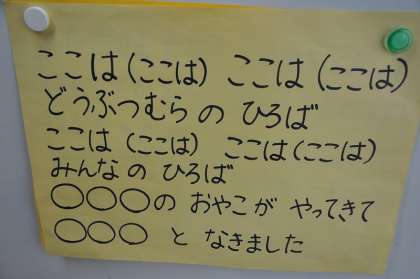 ここは(ここは) ここは(ここは)
どうぶつむらの ひろば
ここは(ここは) ここは(ここは)
みんなの ひろば
○○○の おやこが やってきて
○○○ と なきました